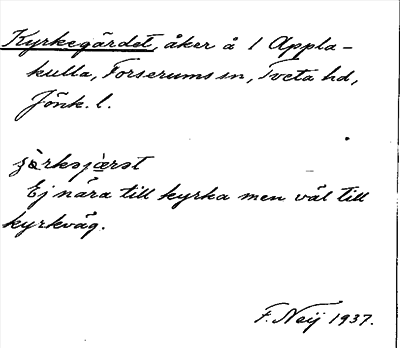 Kyrkegärdet, åker å 1 Appla-
kulla, Forserums sn, Tveta hd,
Jönk. l.
Ej nära till kyrka men väl till
kyrkväg.
F. Neij 1937.